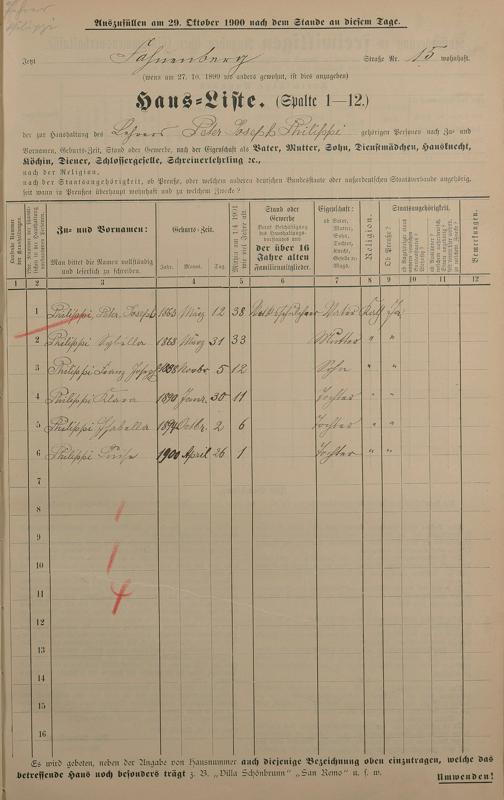 Lehrer
Philippi
Auszufüllen am 29. Oktober 1900 nach dem Stande an diesem Tage.
Jetzt Fahnenberg Straße Nr. 15 wohnhaft.
(wenn am 27. 10. 1899 wo anders gewohnt, ist dies anzugeben)
Haus-Liste. (Spalte 1—12.)
der zur Haushaltung des Lehrers Peter Joseph Philippi gehörigen Personen nach Zu- und
Vornamen, Geburts-Zeit, Stand oder Gewerbe, nach der Eigenschaft als Vater, Mutter, Sohn, Dienstmädchen, Hausknecht,
Köchin, Diener, Schlossergeselle, Schreinerlehrling ꝛc.,
nach der Religion,
nach der Staatsangehörigkeit, ob Preuße, oder welchem anderen deutschen Bundesstaate oder außerdeutschen Staatsverbande angehörig,
seit wann in Preußen überhaupt wohnhaft und zu welchem Zwecke?
Laufende Nummer
der Haushaltungen.
Zu- und Vornamen:
Man bittet die Namen vollständig
und leserlich zu schreiben.
Geburts-Zeit.
Jahr. Monat. Tag.
Mithin am 1/4 1901
wie viel Jahre alt
Stand oder
Gewerbe
der über 16
Jahre alten
Familienmitglieder.
Eigenschaft:
ob Vater,
Mutter,
Sohn,
Tochter,
Knecht,
Geselle
oder
Magd.
Religion.
Staatsangehörigkeit.
Ob Preuße?
Bemerkungen.
1 2 3 4 5 6 7 8 9 10 11 12
1 Philippi, Peter Joseph 1863 März 12 38 Volksschullehrer Vater Kath Ja
2 Philippi Sybilla 1868 März 31 33 Mutter " "
3 Philippi Franz Joseph Novbr 5 12 Sohn " "
4 Philippi Klara 1890 Janr. 30 11 Tochter " "
5 Philippi Isabella 1894 Octbr. 2 6 Tochter " "
6 Philippi Luise 1900 April 26 1 Tochter " "
7
8
9
10
11
12
13
14
15
16
1
1
4
Es wird gebeten, neben der Angabe von Hausnummer auch diejenige Bezeichnung oben einzutragen, welche das
betreffende Haus noch besonders trägt z. B. „Villa Schönbrunn" „San Remo" u. s. w.
Umwenden!